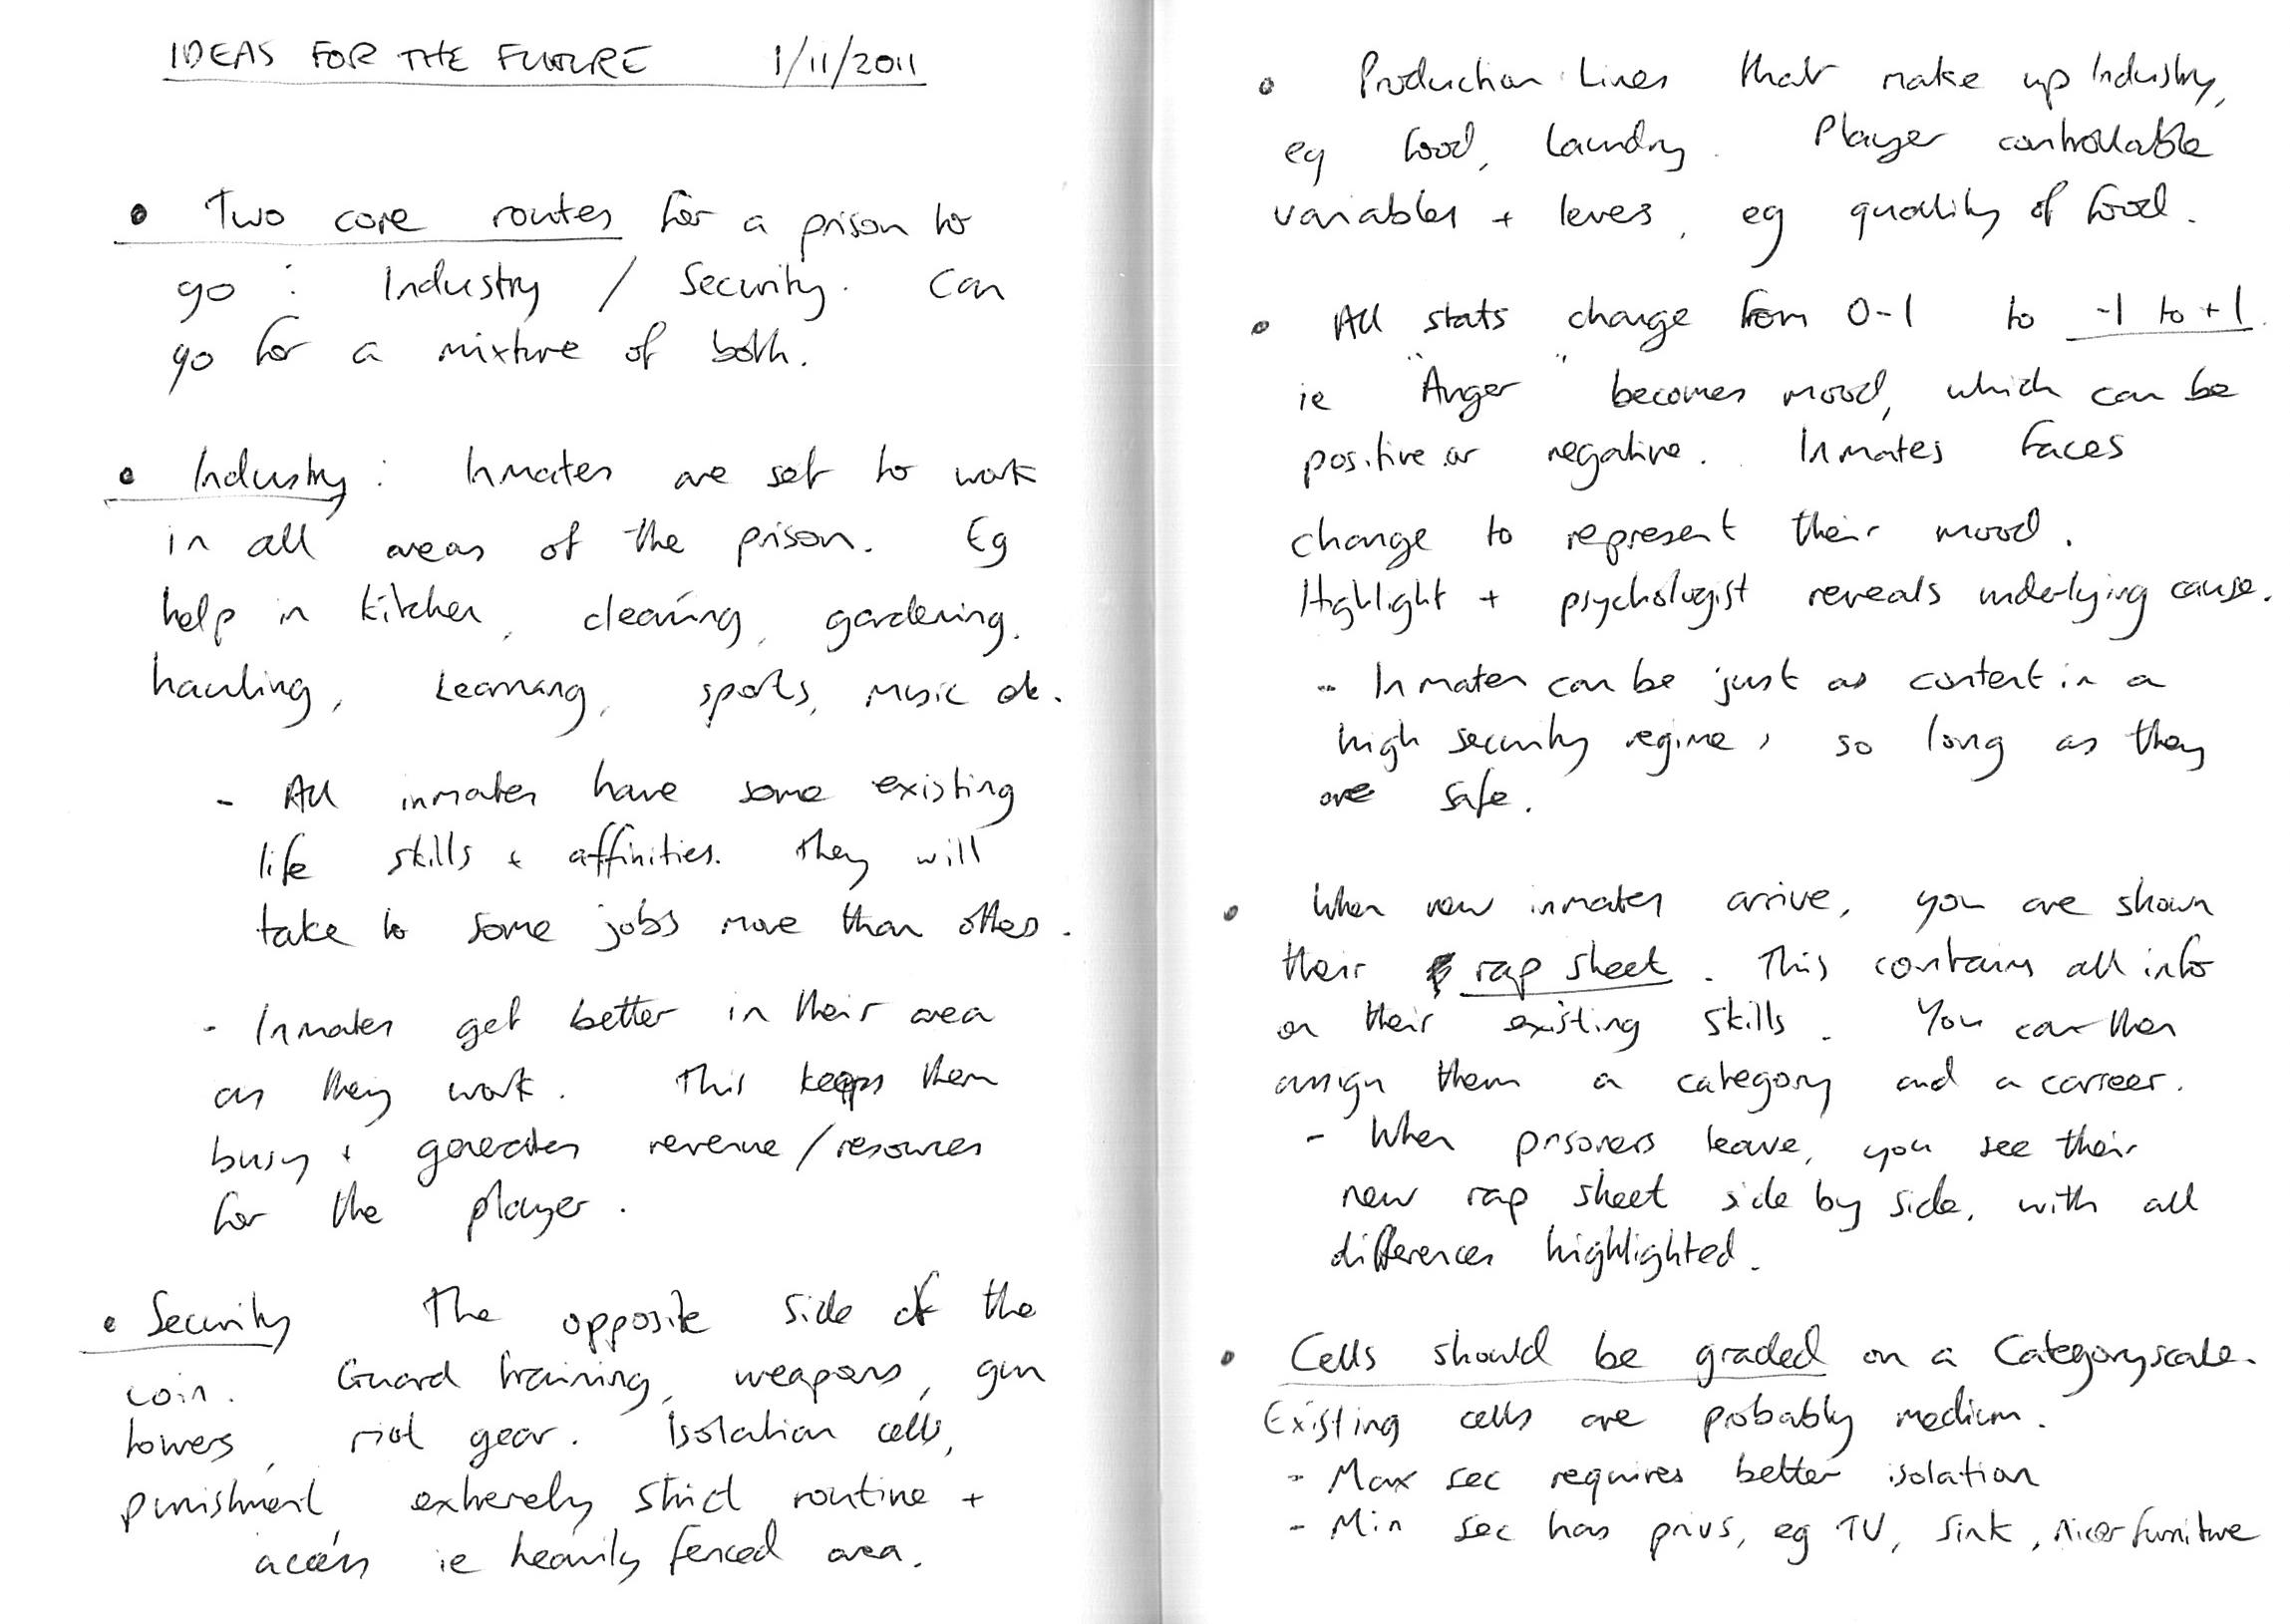 IDEAS FOR THE FUTURE 1/11/2011
• Two core routes for a prison to
go : Industry / Security. Can
go for a mixture of both.
• Industry : Inmates are set to work
in all areas of the prison. Eg
help in kitchen, cleaning, gardening.
hauling, Learning, sports, music etc.
- All inmates have some existing
life skills + affinities. They will
take to some jobs more than others.
- Inmates get better in their area
as they work. This keeps them
busy + generates revenue/resources
for the player.
• Security The opposite side of the
coin. Guard training, weapons, gun
towers, riot gear. Isolation cells,
punishment, extremely strict routine +
access ie heavily fenced area.
• Production Lines that make up Industry,
eg food, Laundry. Player controllable
variables + levers, eg quality of food.
• All stats change from 0-1 to -1 to +1.
ie "Anger" becomes mood, which can be
positive or negative. Inmates faces
change to represent their mood.
Highlight + psychologist reveals underlying cause.
- Inmates can be just as content in a
high security regime, so long as they
are safe.
• When new inmates arrive, you are shown
their rap sheet. This contains all info
on their existing skills. You can then
assign them a category and a carreer.
- When prisoners leave, you see their
new rap sheet side by side, with all
differences highlighted.
• Cells should be graded on a Category scale.
Existing cells are probably medium.
- Max sec requires better isolation
- Min sec has privs, eg TV, sink, nicer furniture